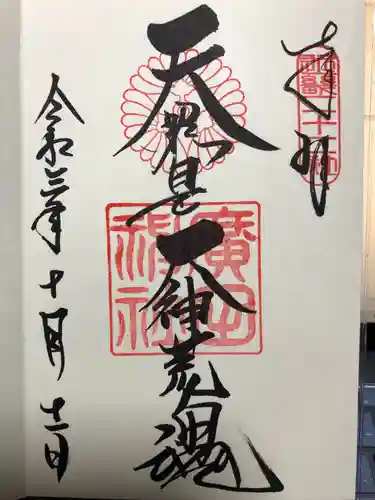 奉拝
天照皇大神荒魂
廣田神社
令和二年十月十一日